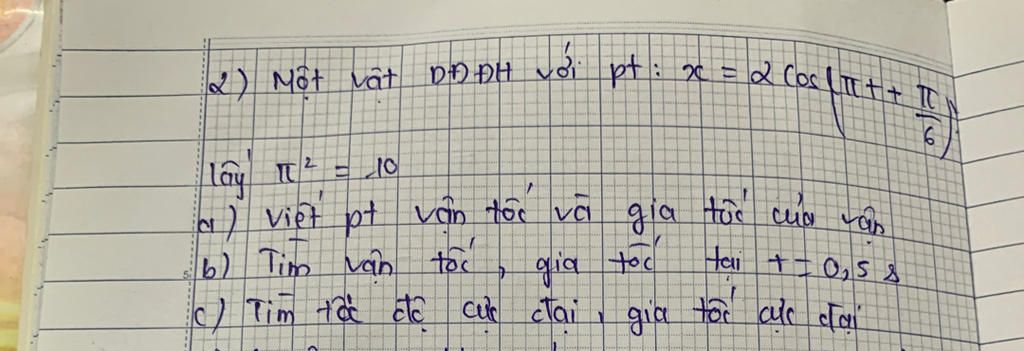 2) Một vật DĐĐH với pt: x = 2 cos(πt + π/6)
lấy π² = 10
a) Viết pt vận tốc và gia tốc của vận
b) Tìm vận tốc, gia tốc tại t = 0,5 s
c) Tìm tốc độ cực đại, gia tốc cực đại